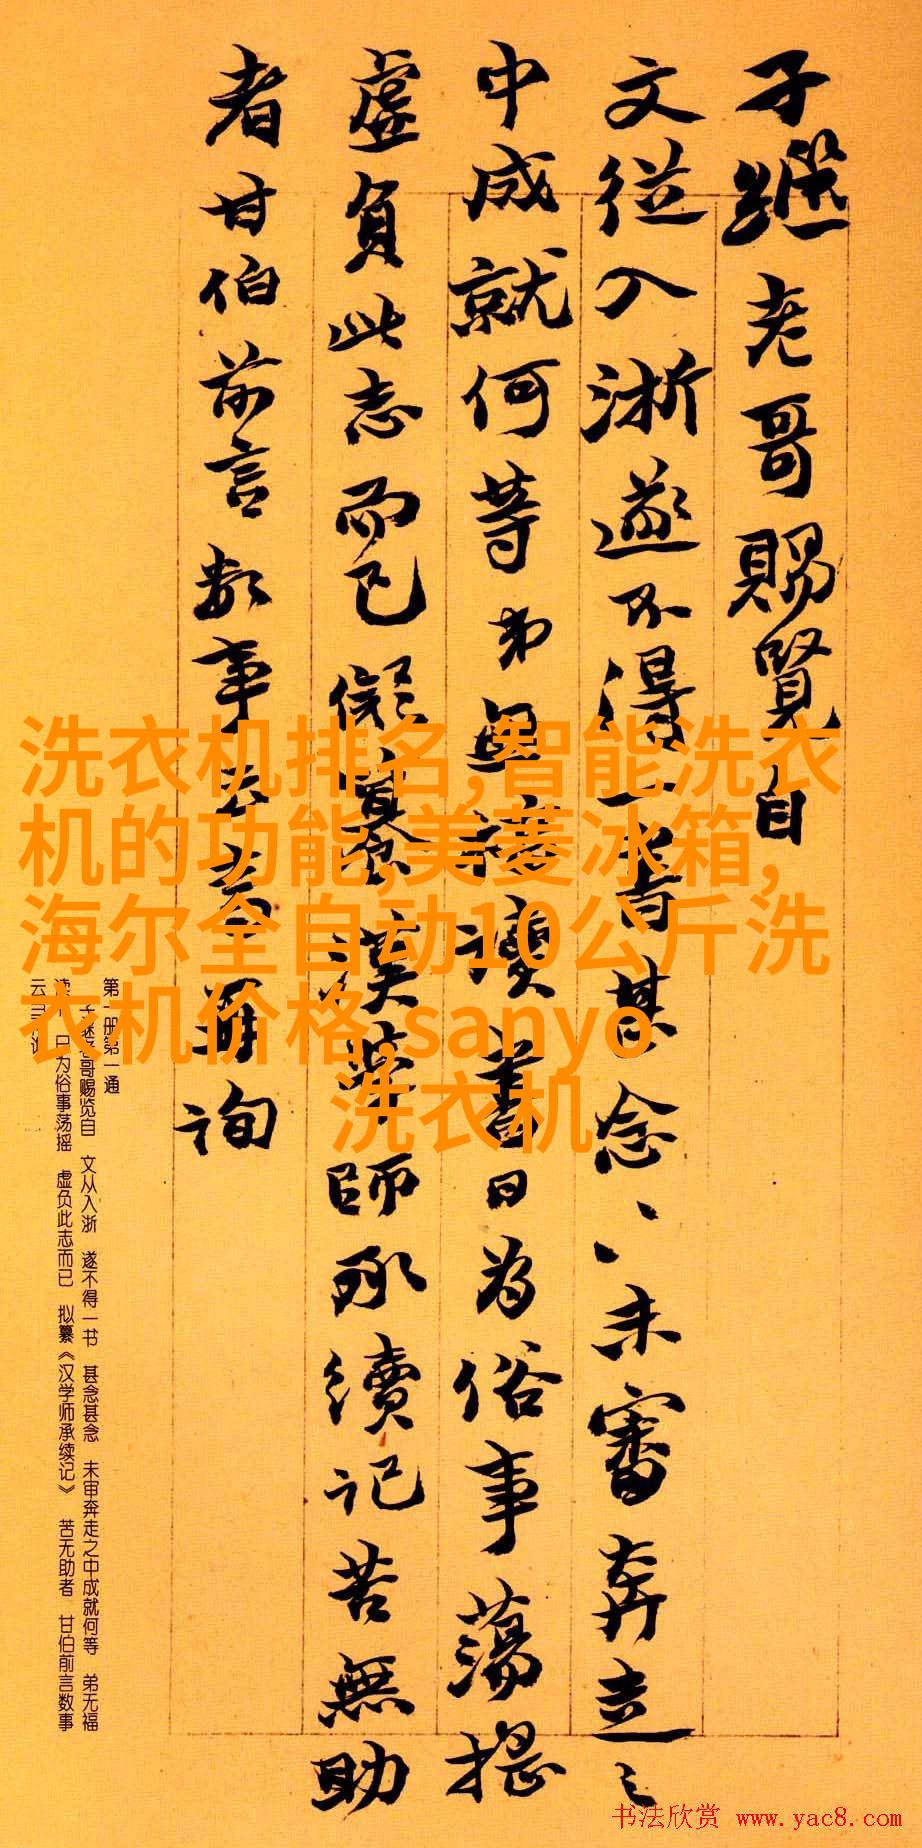 子繼老哥賜覽自
文從入浙遂不得一書甚念〻未審奔走之
中成就何等弟無福讀書日為俗事蕩搖
虛負此志而已擬纂漢學師承續記苦無助
者甘伯前言數事云再詢
洗衣机排名,智能洗衣
机的功能,美菱冰箱,
海尔全自动10公斤洗
衣机价格,sanyo
洗衣机
第一册第一通
子继老哥赐览自 文从入浙 遂不得一书 甚念甚念 未审奔走之中成就何等 弟无福
读书 日为俗事荡摇 虚负此志而已 拟纂《汉学师承续记》 苦无助者 甘伯前言数事
云
书法欣赏 www.yac8.com